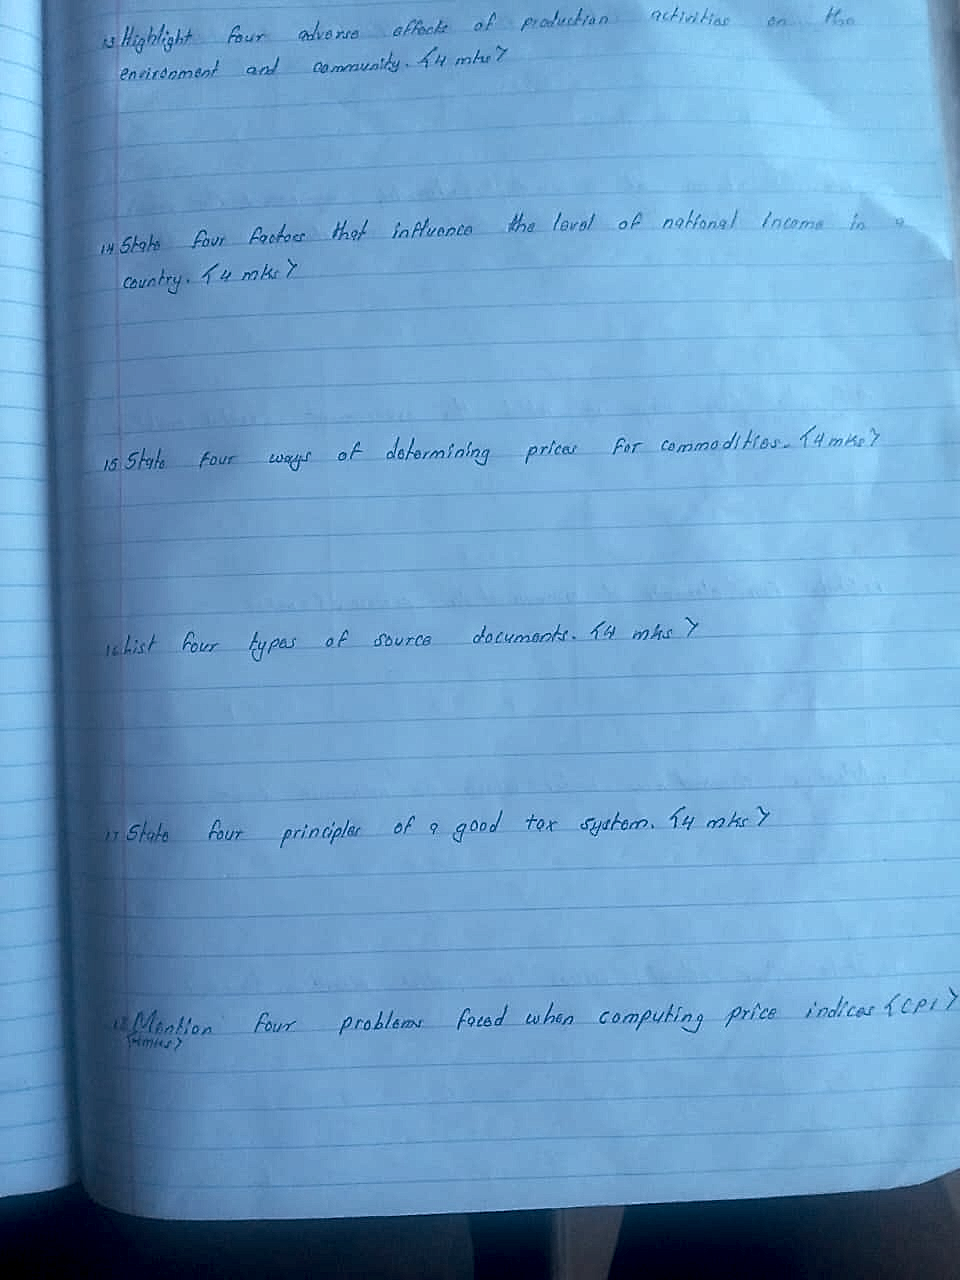 13 Highlight four adverse effects of production activities on the
environment and community. {4 mks}
14 State four factors that influence the level of national income in a
country. {4 mks}
15 State four ways of determining prices for commodities. {4 mks}
16 List four types of source documents. {4 mks}
17 State four principles of a good tax system. {4 mks}
18 Mention four problems faced when computing price indices {CPI}
{4mks}